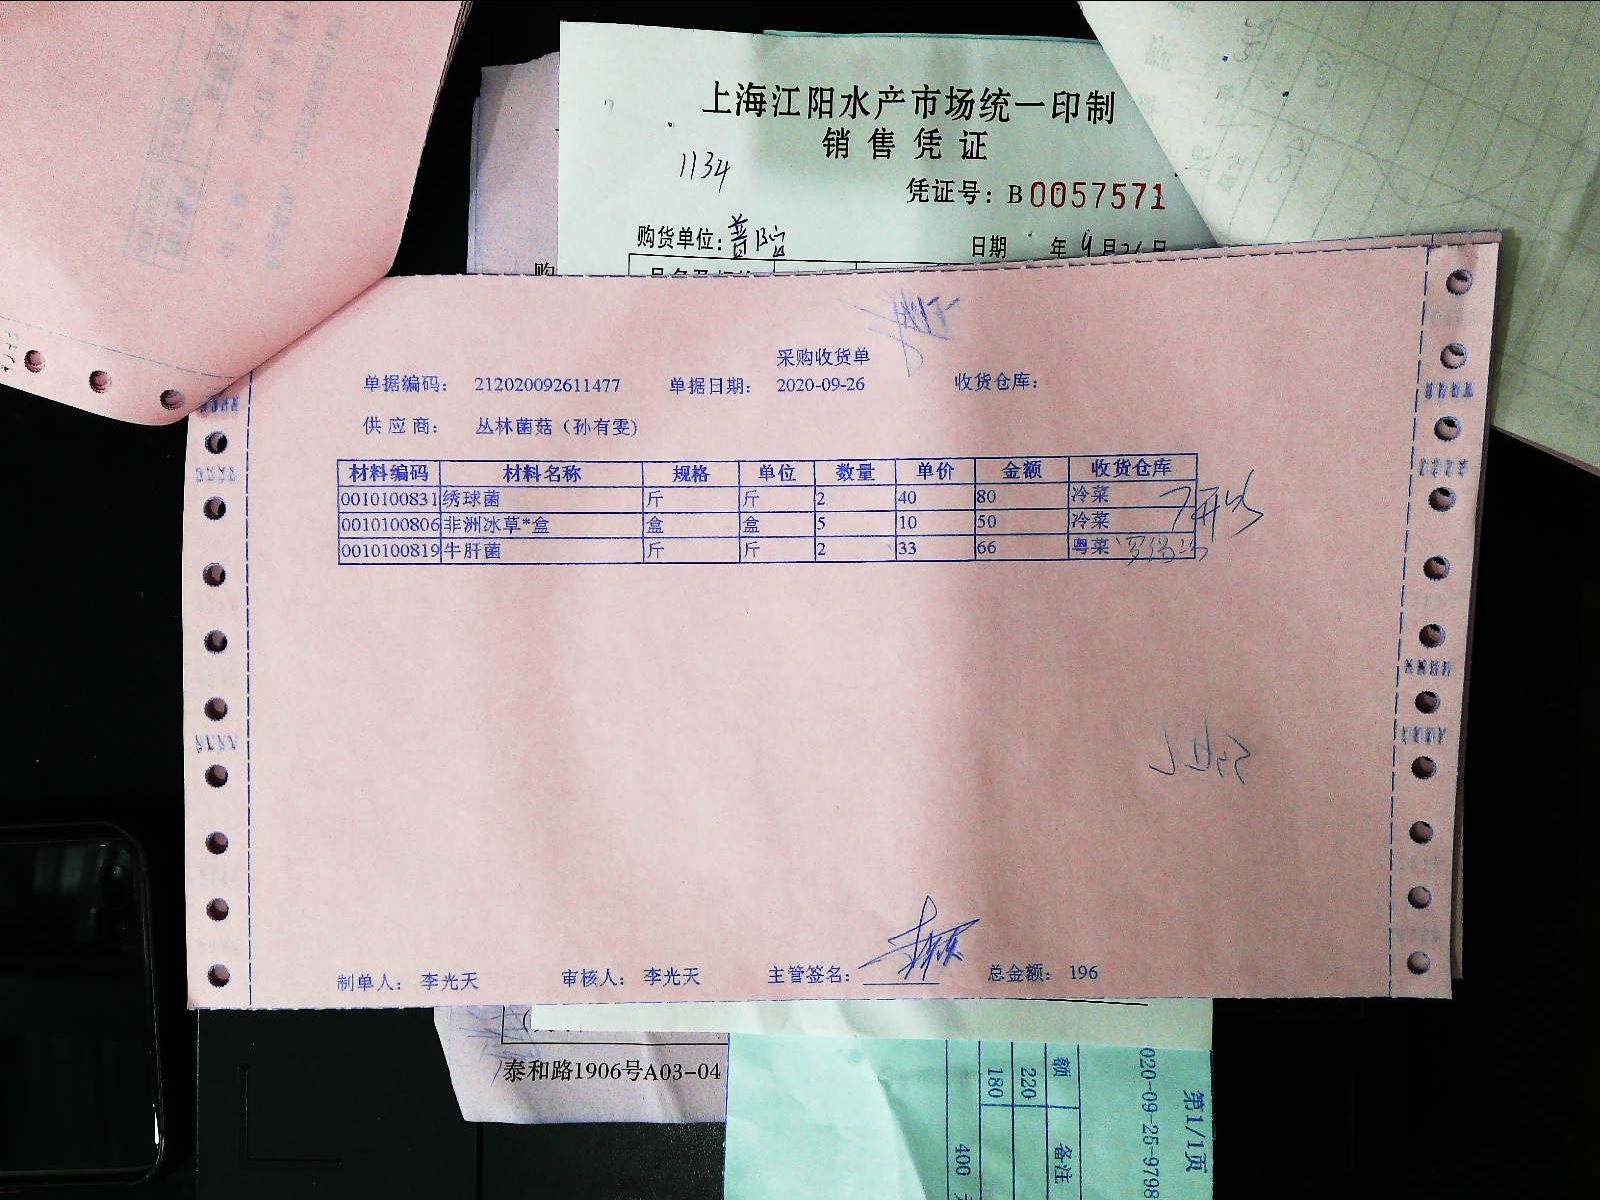 上海江阳水产市场统一印制
销售凭证
1134
凭证号：B0057571
购货单位：
日期 年9月26日
购
采购收货单
单据编码： 212020092611477 单据日期： 2020-09-26 收货仓库：
供应商： 丛林菌菇（孙有雯）
材料编码 材料名称 规格 单位 数量 单价 金额 收货仓库
0010100831 绣球菌 斤 斤 2 40 80 冷菜
0010100806 非洲冰草*盒 盒 盒 5 10 50 冷菜
0010100819 牛肝菌 斤 斤 2 33 66 粤菜
制单人： 李光天 审核人： 李光天 主管签名： 总金额： 196
泰和路1906号A03-04
第1/1页
020-09-25-9798
额 备注
220
180
400